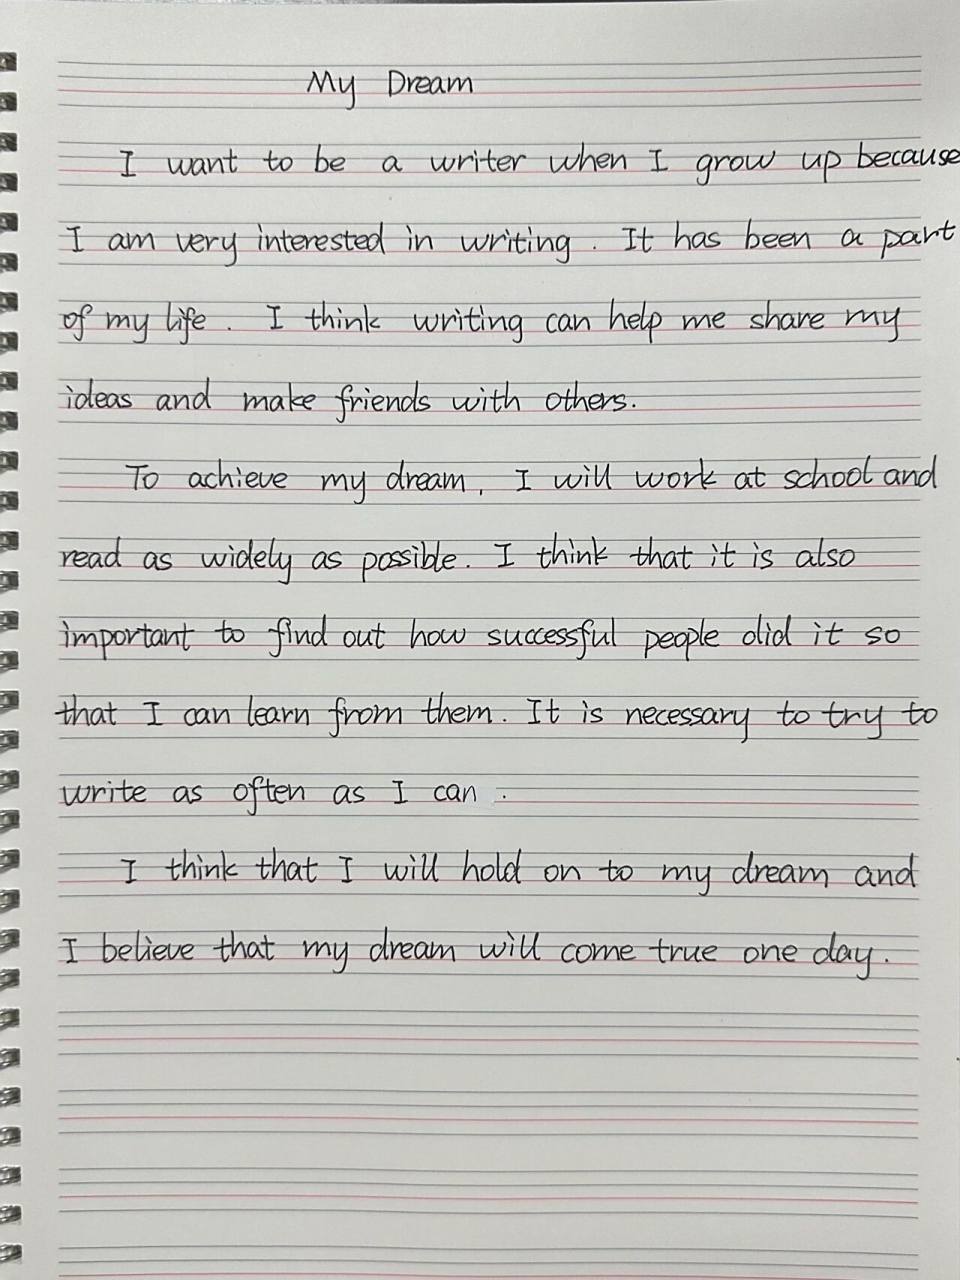 My Dream
I want to be a writer when I grow up because
I am very interested in writing. It has been a part
of my life. I think writing can help me share my
ideas and make friends with others.
To achieve my dream, I will work at school and
read as widely as possible. I think that it is also
important to find out how successful people did it so
that I can learn from them. It is necessary to try to
write as often as I can.
I think that I will hold on to my dream and
I believe that my dream will come true one day.